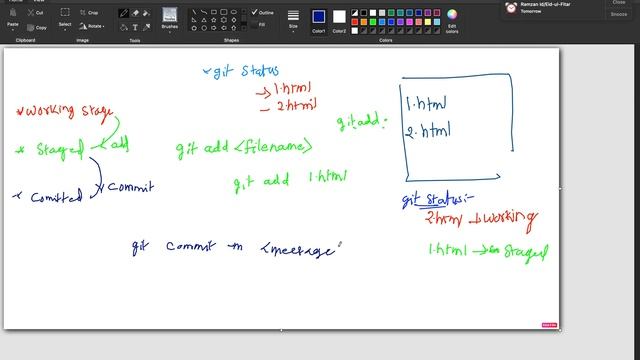 Ramzan Id/Eid-ul-Fitar
Tomorrow
Close
Snooze
Cut
Copy
Crop
Select
Rotate
Brushes
Outline
Fill
Size
Color1
Color2
Edit colors
Clipboard
Image
Tools
Shapes
Colors
* git status
→ 1.html
- 2.html
* working stage
* Staged
add
* Comitted
Commit
git add <filename>
git add 1.html
git add .
1.html
2.html
git status:-
2.html → working
1.html → Staged
git commit -m <meesage